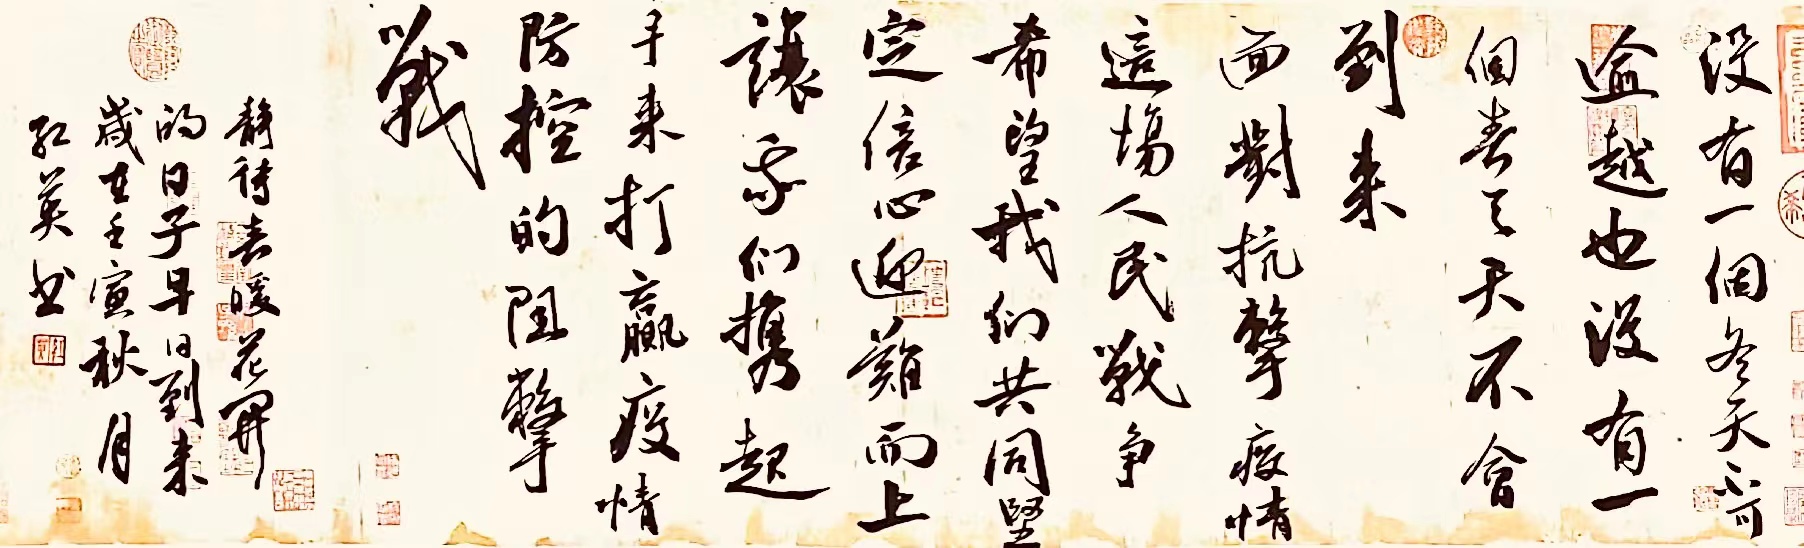 没有一個冬天不可
逾越也没有一
個春天不會
到来
面對抗擊疫情
這場人民戰争
希望我们共同堅
定信心迎難而上
讓我们携起
手来打贏疫情
防控的阻擊
戰
静待春暖花開
的日子早日到来
歲在壬寅秋月
红英书